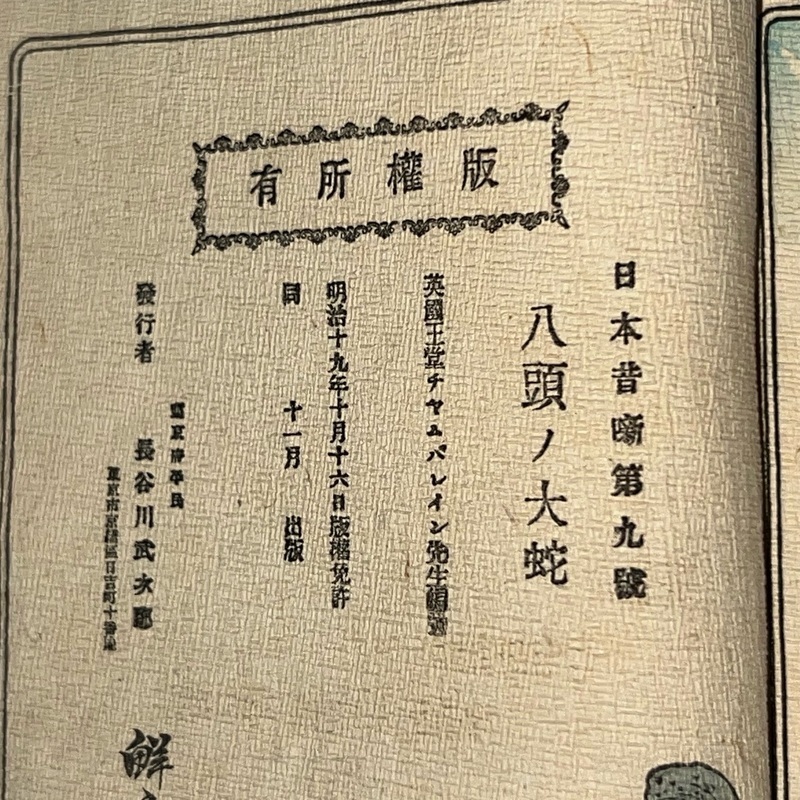 版權所有
日本昔噺第九號
八頭ノ大蛇
英國王堂チャムバレイン先生編述
明治十九年十月十六日版權免許
同 十一月 出版
發行者
東京府平民
長谷川武次郎
東京市京橋區日吉町十番地
鮮